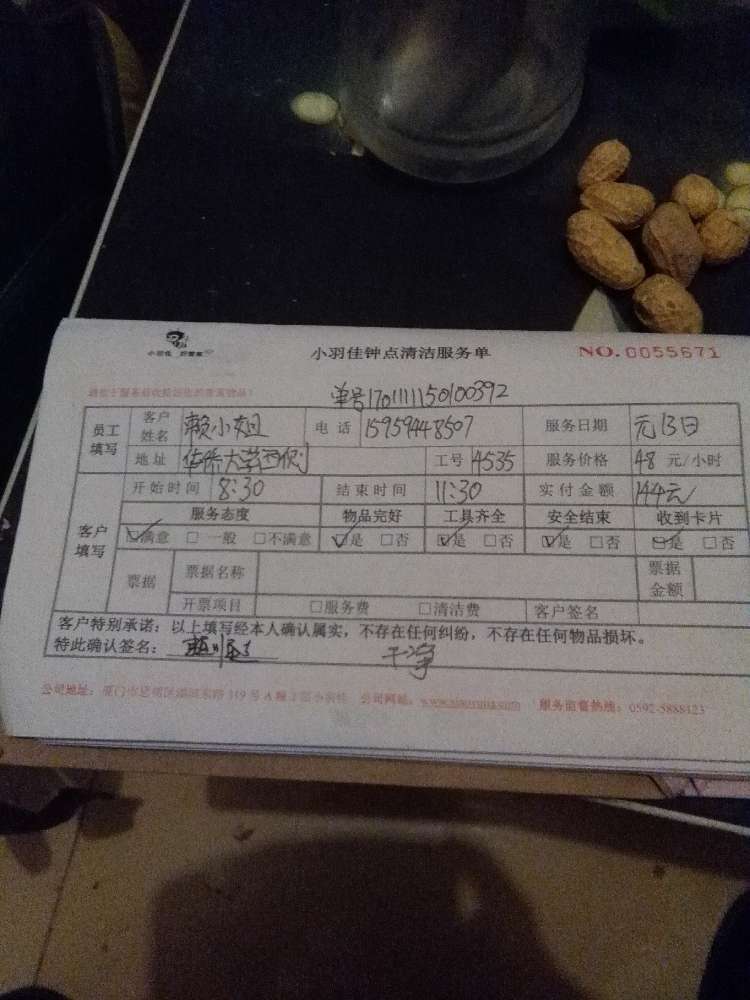 小羽佳 好管家
小羽佳钟点清洁服务单
NO.0055671
单号170111150100392
员工填写 客户姓名 赖小姐 电话 15959448507 服务日期 元13日
地址 华侨大学西侧 工号 4535 服务价格 48 元/小时
客户填写 开始时间 8:30 结束时间 11:30 实付金额 144元
服务态度 物品完好 工具齐全 安全结束 收到卡片
☑满意 □一般 □不满意 ☑是 □否 ☑是 □否 ☑是 □否 ☑是 □否
票据 票据名称 票据金额
开票项目 □服务费 □清洁费 客户签名
客户特别承诺：以上填写经本人确认属实，不存在任何纠纷，不存在任何物品损坏。
特此确认签名： 干净
公司地址： 公司网站： 服务监督热线：0592-5888123